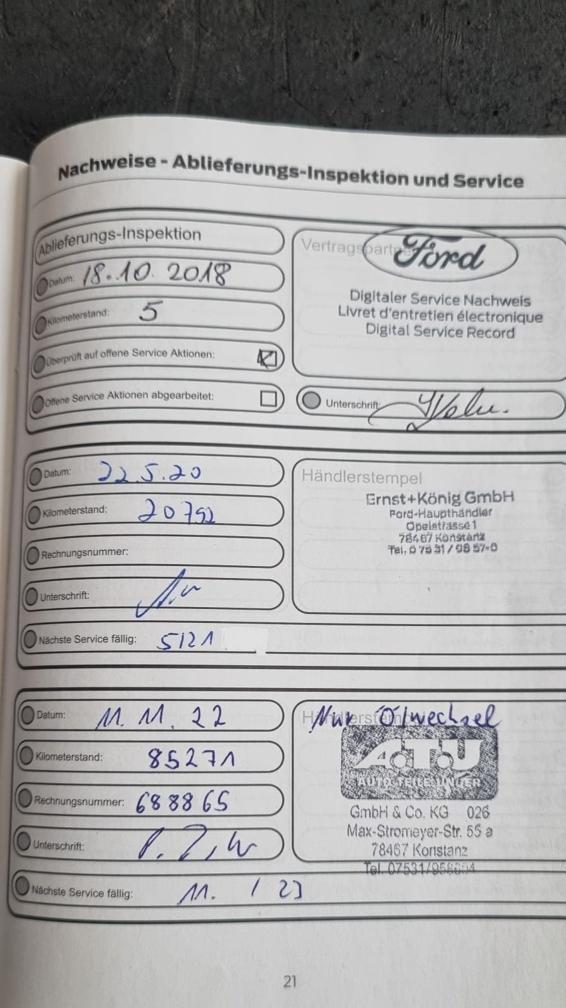 Nachweise - Ablieferungs-Inspektion und Service
Ablieferungs-Inspektion
Datum: 18.10.2018
Kilometerstand: 5
Überprüft auf offene Service Aktionen:
Offene Service Aktionen abgearbeitet:
Vertragspart
Ford
Digitaler Service Nachweis
Livret d'entretien électronique
Digital Service Record
Unterschrift:
Datum: 22.5.20
Kilometerstand: 20792
Rechnungsnummer:
Unterschrift:
Nächste Service fällig: 5/21
Händlerstempel
Ernst+König GmbH
Ford-Haupthändler
Opelstrasse 1
78467 Konstanz
Tel. 0 75 31 / 98 57-0
Datum: 11.11.22
Kilometerstand: 85271
Rechnungsnummer: 688865
Unterschrift:
Nächste Service fällig: 11. / 23
Nur Ölwechsel
A.T.U
AUTO-TEILE-UNGER
GmbH & Co. KG 026
Max-Stromeyer-Str. 55 a
78467 Konstanz
21